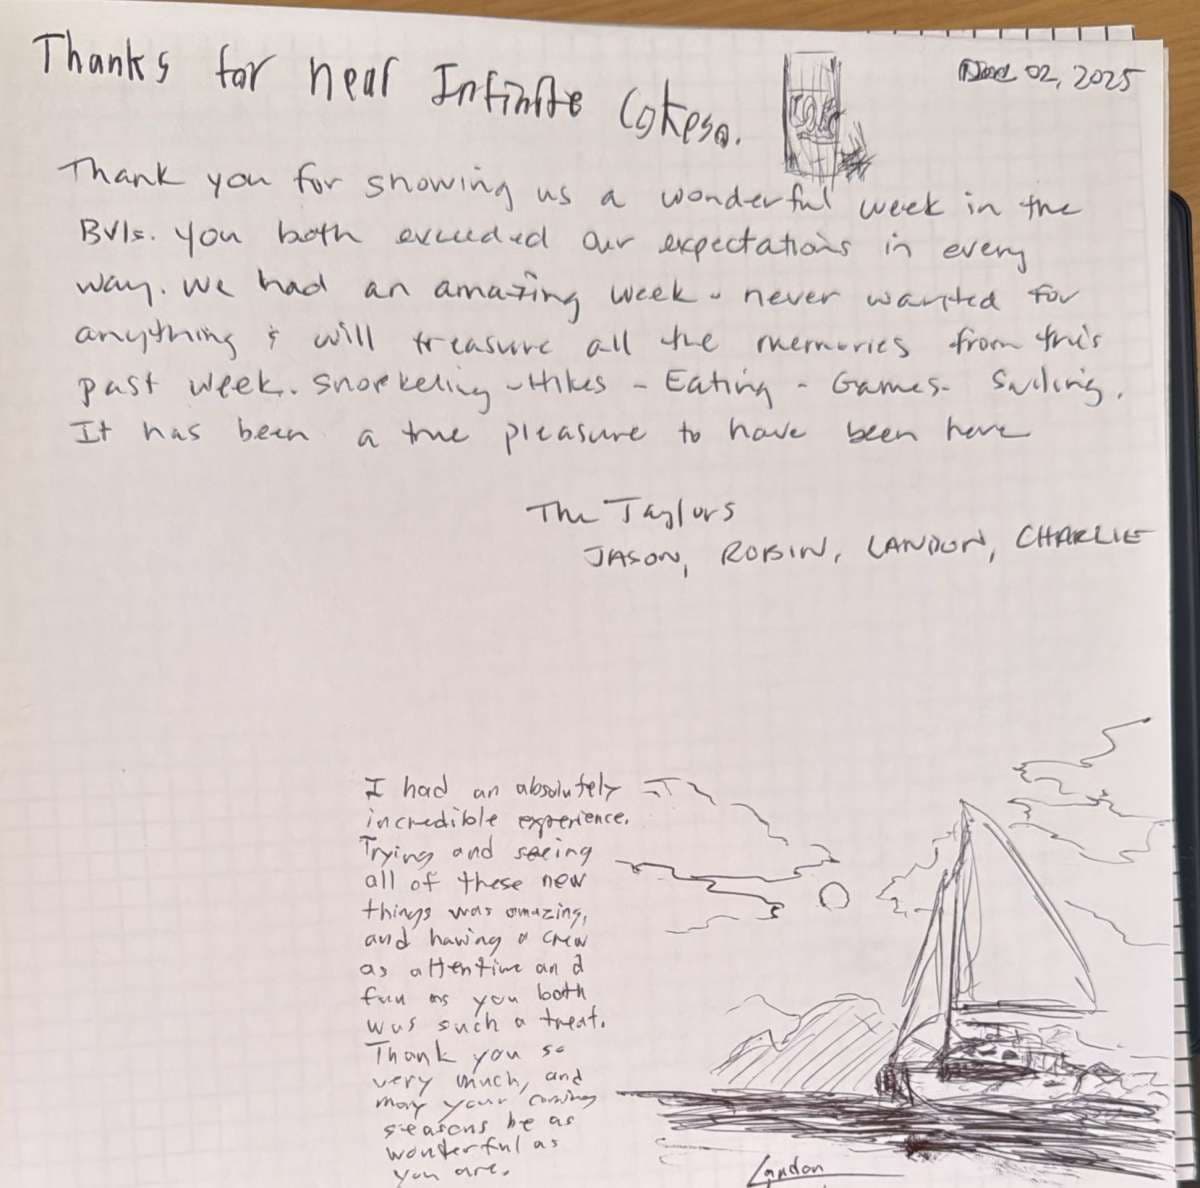 Thanks for near Infinite Cokes.
Dec 02, 2025
Thank you for showing us a wonderful week in the
BVIs. You both exceeded our expectations in every
way. We had an amazing week - never wanted for
anything & will treasure all the memories from this
past week. Snorkeling - Hikes - Eating - Games - Sailing.
It has been a true pleasure to have been here
The Taylors
JASON, ROBIN, LANDON, CHARLIE
I had an absolutely
incredible experience.
Trying and seeing
all of these new
things was amazing,
and having a crew
as attentive and
fun as you both
was such a treat.
Thank you so
very much, and
may your coming
seasons be as
wonderful as
you are.
Landon